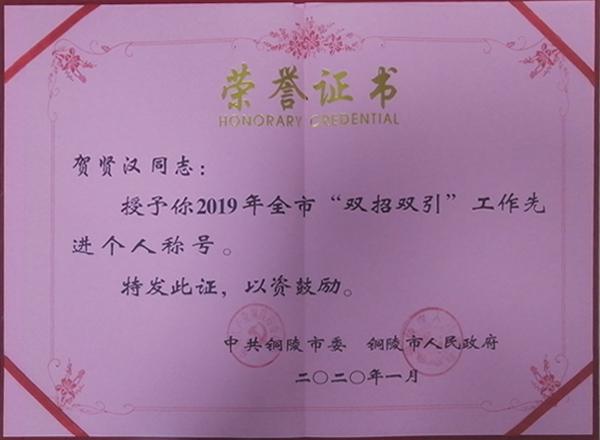 荣誉证书
HONORARY CREDENTIAL
贺贤汉同志：
授予你2019年全市“双招双引”工作先
进个人称号。
特发此证，以资鼓励。
中共铜陵市委 铜陵市人民政府
二〇二〇年一月